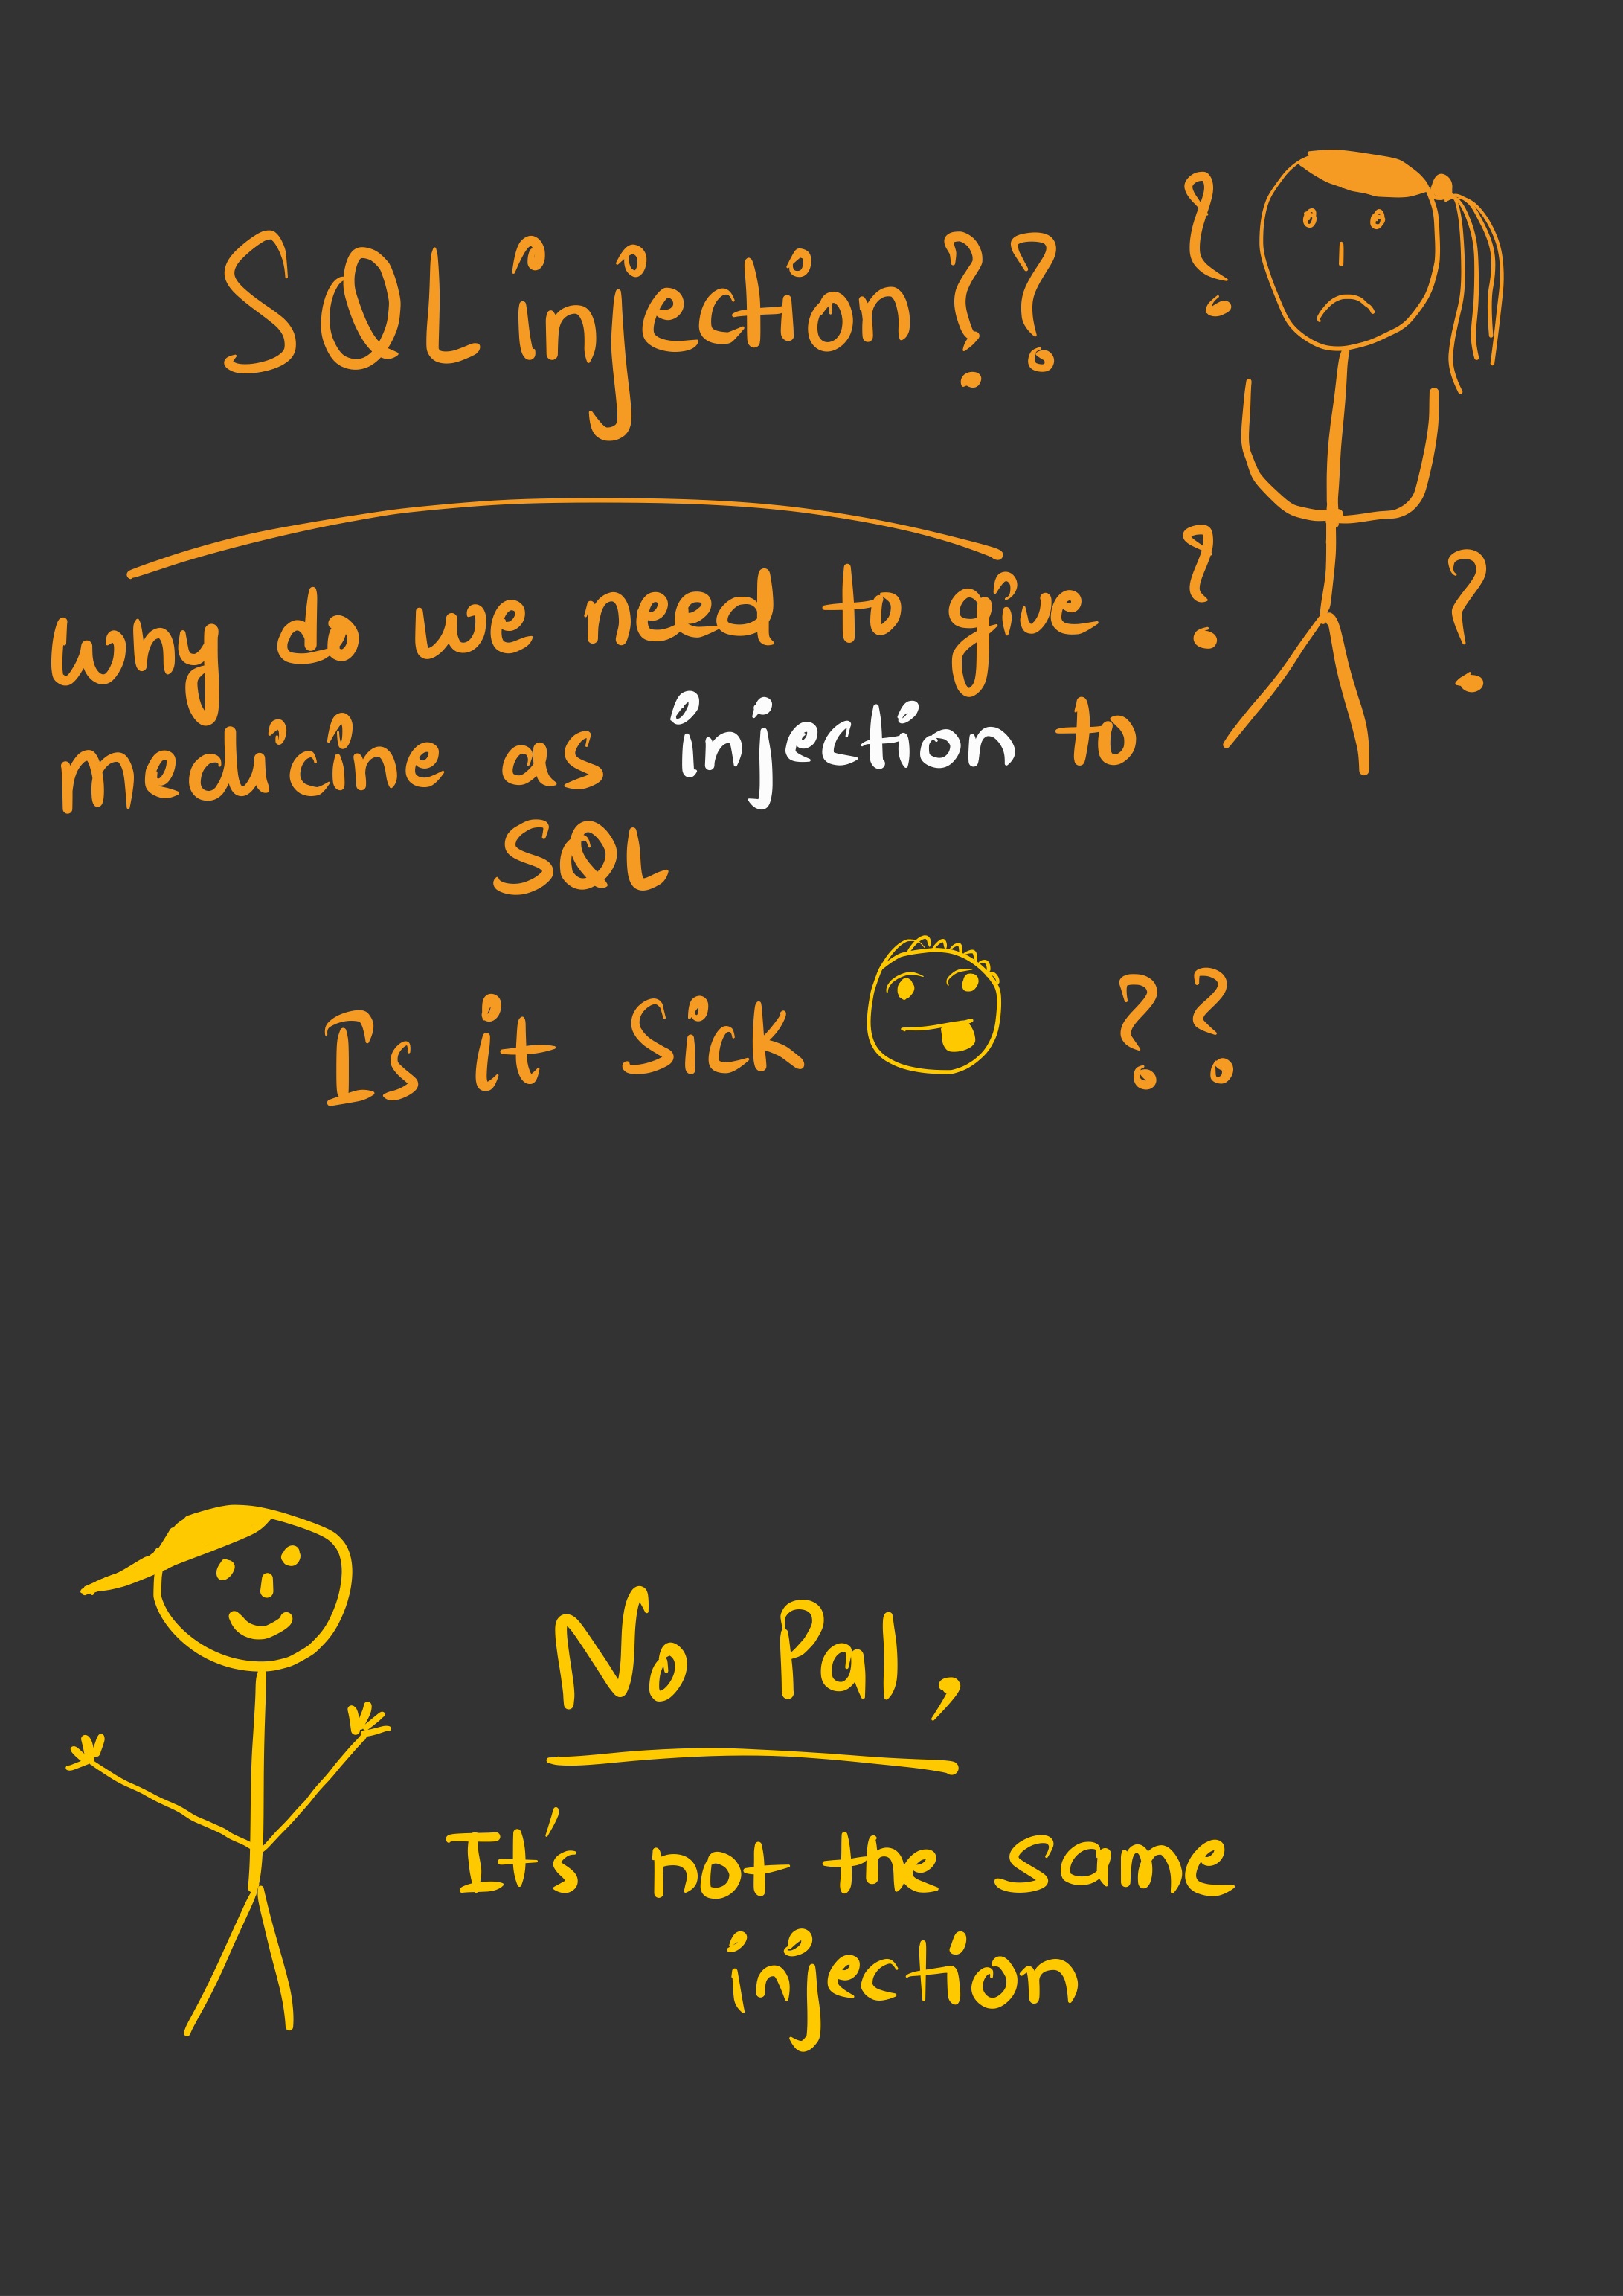 SQL injection ??
why do we need to give
medicine as injection to
SQL
Is it Sick ??
No Pal,
It's not the same
injection